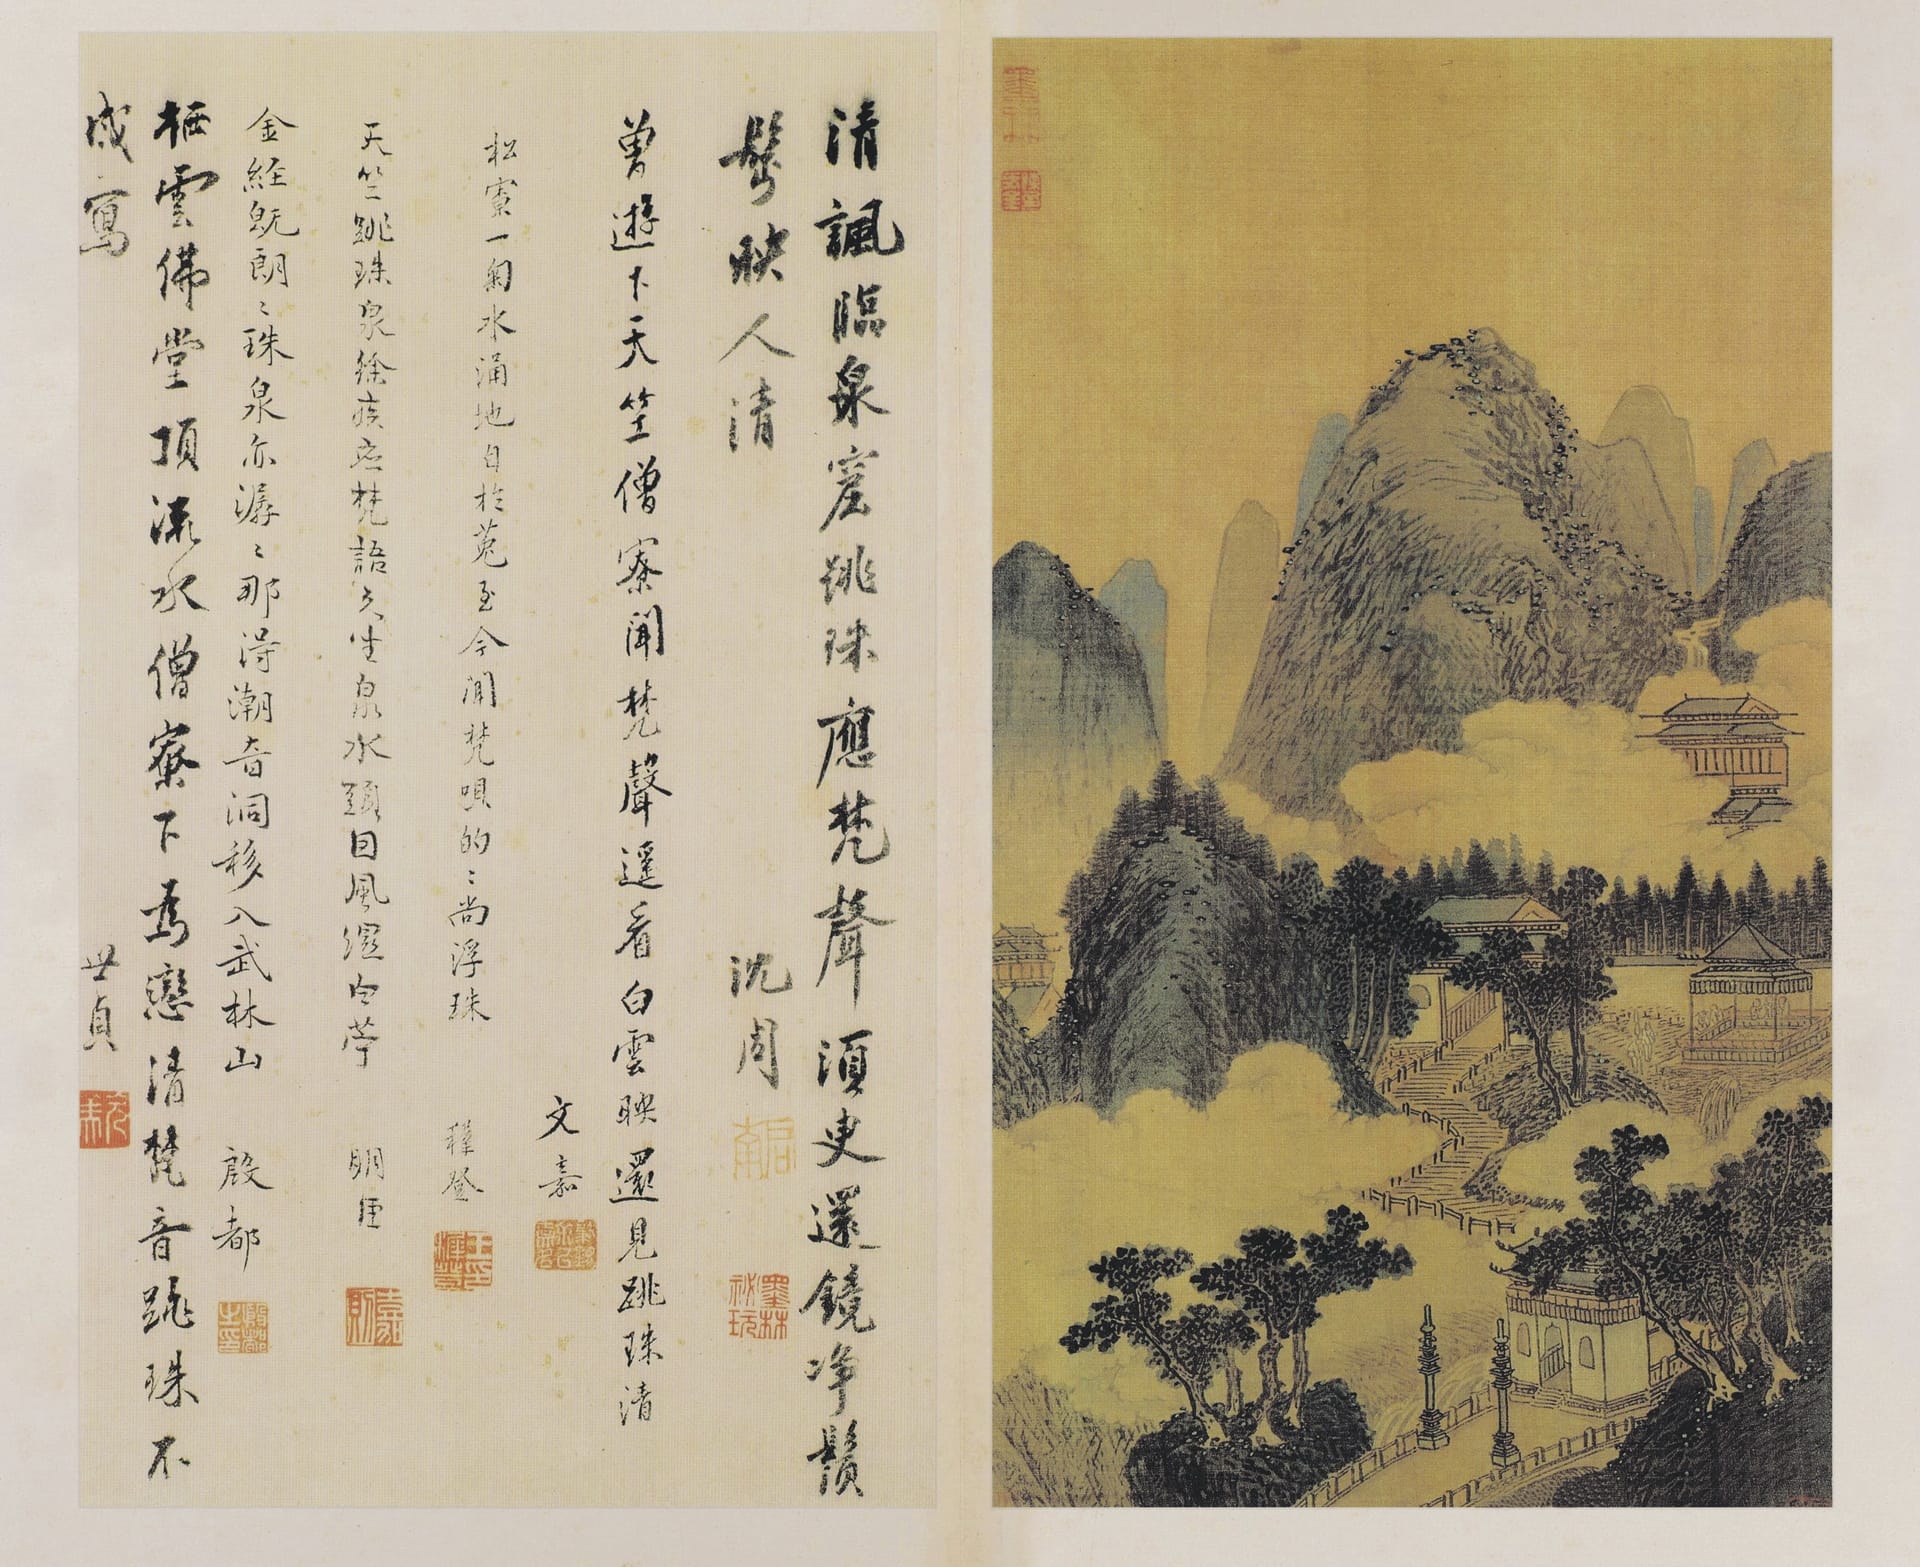 清諷臨泉窟跳珠應梵聲須臾還鏡淨鬚
髩映人清
沈周
啟南
墨林秘玩
曾遊下天竺僧寮聞梵聲遥看白雲映還見跳珠清
文嘉
松寮一匊水涌地自於菟至今聞梵唄的〻尚浮珠
穉登
王穉登印
天竺跳珠泉徐疾應梵語久坐泉水頭回風濕白苧
明臣
金經既朗〻珠泉亦潺〻那得潮音洞移入武林山
殷都
殷都之印
栖雲佛堂頂流水僧寮下為戀清梵音跳珠不
成寫
世貞
元美